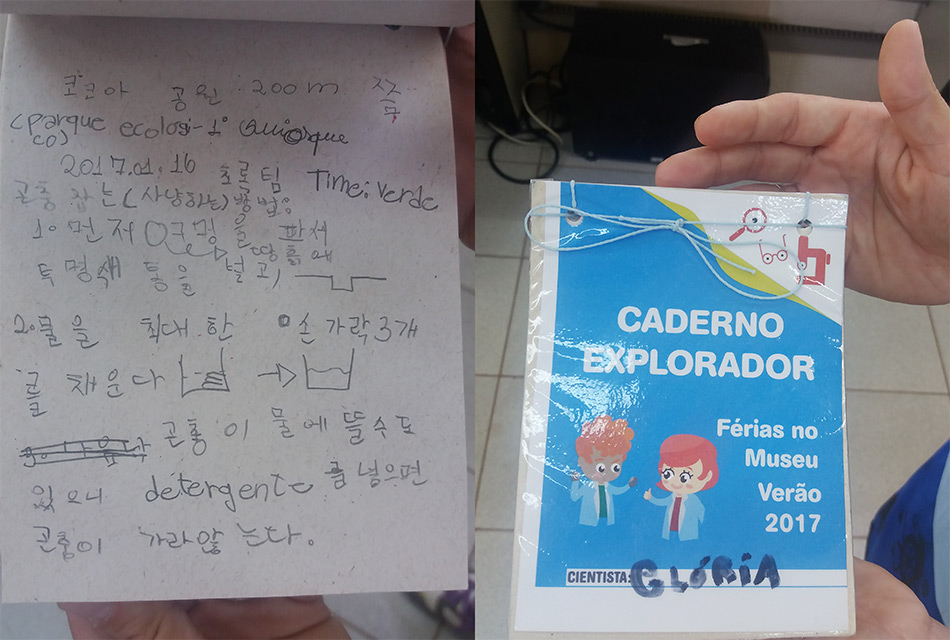 코코아 공원 200m 쯤
(parque ecologi-1°
co)
2017.01.16 초로팀 Time: verde
곤충 찾는(사냥하는) 방법:
1. 먼저 구멍을 파서
투명색 통을 넣고,
2. 물을 최대한 손가락3개
를 채운다
곤충이 물에 뜰수도
있으니 detergente 좀 넣으면
곤충이 가라앉는다.
CADERNO
EXPLORADOR
Férias no
Museu
Verão
2017
CIENTISTA: GLÓRIA